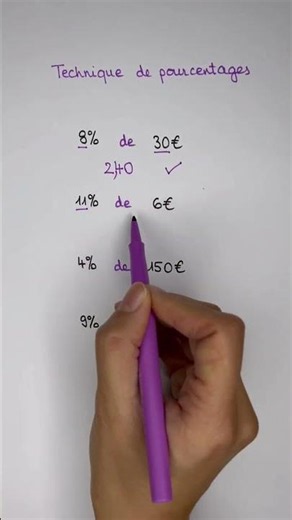 Technique de pourcentages
8% de 30€
2,40 ✓
11% de 6€
4% de 150€
9%